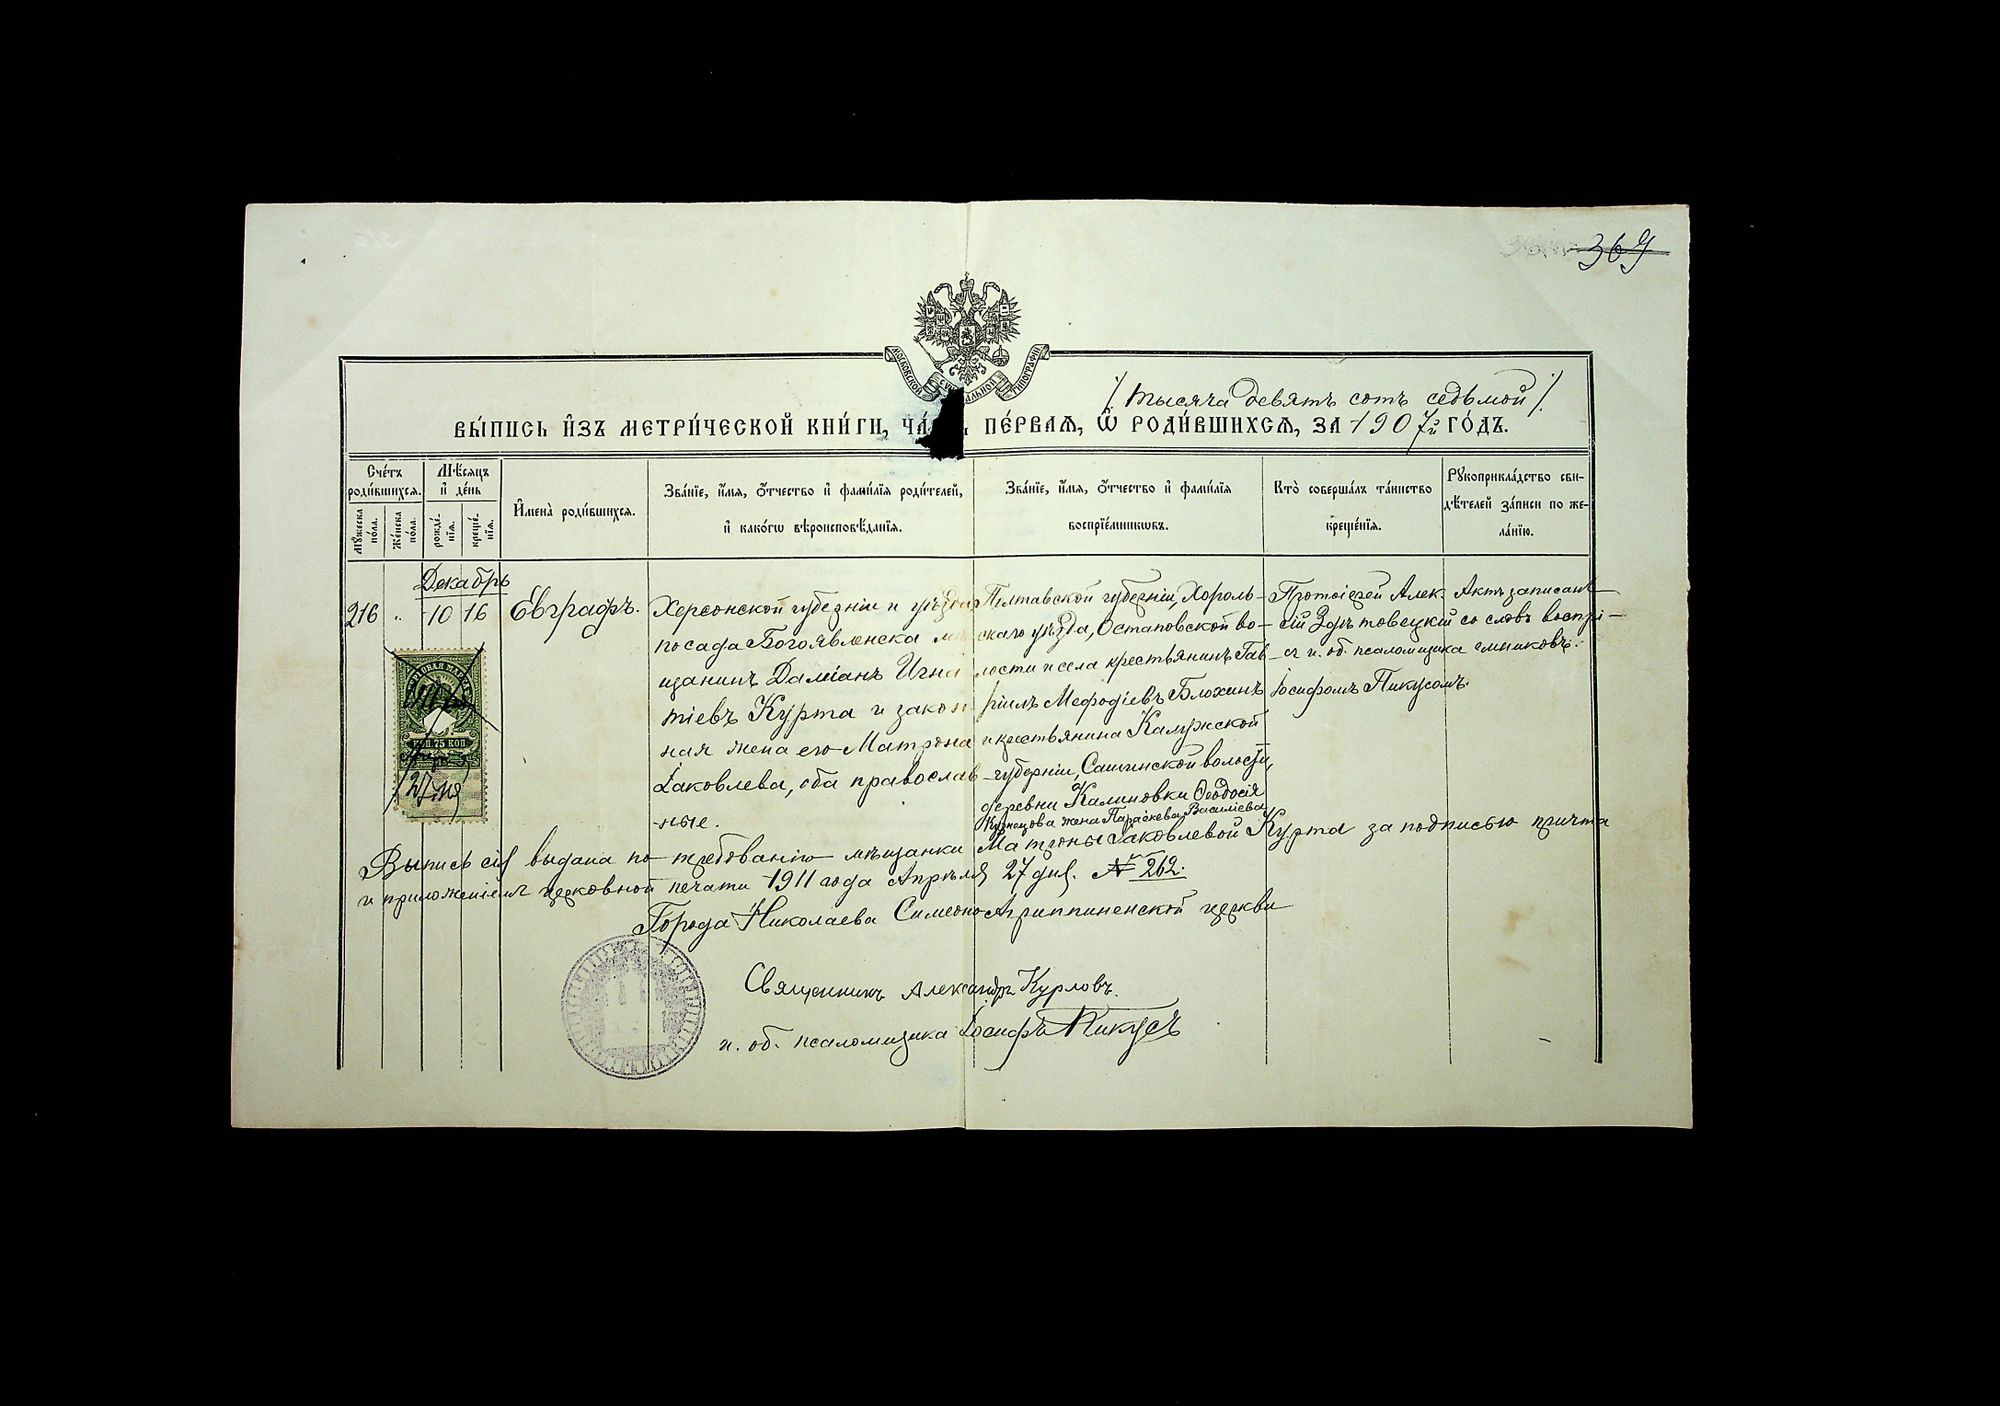 369
МОСКОВСКОЙ СУНОДАЛЬНОЙ ТИПОГРАФІИ
/тысяча девятъ сотъ седьмой/.
ВЫ́ПИСЬ И҆ЗЪ МЕТРИ́ЧЕСКОЙ КНИ́ГИ, ЧА́ ПЕ́РВАѦ, Ѽ РОДИ́ВШИХСѦ, ЗА 1907й ГО́ДЪ.
Сче́тъ роди́вшихсѧ.
Мꙋ́жеска по́ла.
Же́нска по́ла.
Мѣ́сѧцъ и҆ де́нь
рожде́нїѧ.
креще́нїѧ.
И҆мена̀ роди́вшихсѧ.
Зва́нїе, и҆́мѧ, ѻ҆́тчество и҆ фами́лїѧ роди́телей,
и҆ како́гѡ вѣроисповѣ́данїѧ.
Зва́нїе, и҆́мѧ, ѻ҆́тчество и҆ фами́лїѧ
воспрїе́мникѡвъ.
Кто̀ соверша́лъ та́инство
креще́нїѧ.
Рꙋкоприкла́дство сви-
дѣ́телей за́писи по же-
ла́нїю.
Декабрь
216 " 10 16
Евграфъ.
Херсонской губерніи и уѣзда
посада Богоявленска мѣ
щанинъ Даміанъ Игна
тіевъ Курта и закон
ная жена его Матрона
Іаковлева, оба православ
-ные.
Полтавской губерніи, Хороль-
скаго уѣзда, Остаповской во-
лости и села крестьянинъ Гав-
ріилъ Мефодіевъ Блохинъ
и крестьянина Калужской
губерніи, волости,
деревни Калиновки Ѳеодосія
Кузнецова жена Параскева Василіева
Протоіерей Алек
сій
съ и. об. псаломщика
Іосифомъ Пикусомъ.
Актъ записанъ
со словъ воспрі-
емниковъ.
75 КОП
Выпись сія выдана по требованію мѣщанки Матроны Іаковлевой Курта за подписью причта
и приложеніемъ церковной печати 1911 года Апрѣля 27 дня. № 262.
Города Николаева Симеоно Агриппиненской церкви
Священникъ Александръ Курловъ.
и. об. псаломщика Іосифъ Пикусъ